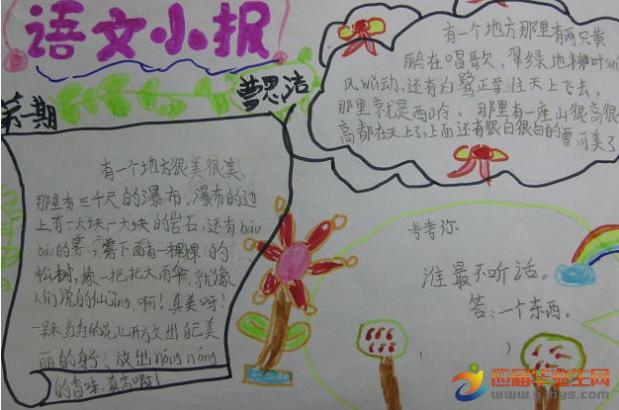 语文小报
第一期
曹思洁
有一个地方很美很美,
那里有三千尺的瀑布,瀑布的边
上有一大块一大块的岩石,还有báo
báo的雾,雾下面有一棵棵的
松树,像一把把大雨伞,就像
人们说的仙jìng,啊!真美呀!
一朵红红的花儿开放出自己美
丽的身子,放出nóng nóng
的香味,真香啊!
有一个地方那里有两只黄
鹂在唱歌,翠绿地柳叶suí
风wǔ动,还有白鹭正要往天上飞去,
那里就是西岭。那里有一座山很高很
高都在天上了,上面还有很白很白的雪可美了
考考你
谁最不听话。
答:一个东西。
( )
( )
应届毕业生网
www.yjbys.com